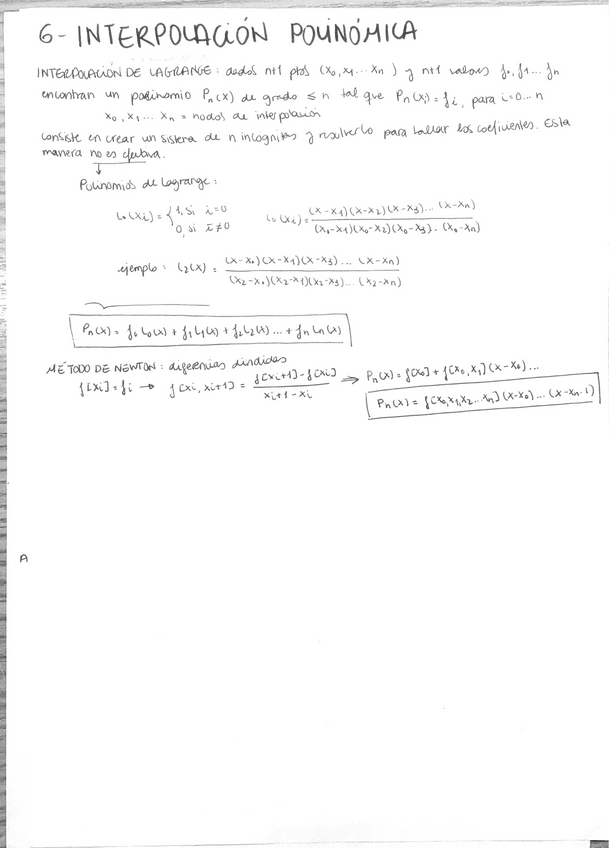 6- INTERPOLACIÓN POLINÓMICA
INTERPOLACIÓN DE LAGRANGE: dados n+1 ptos (x₀, x₁ ... xₙ) y n+1 valores f₀, f₁ ... fₙ
encontrar un polinomio Pₙ(x) de grado ≤ n tal que Pₙ(xᵢ) = fᵢ, para i=0...n
x₀, x₁ ... xₙ = nodos de interpolación
Consiste en crear un sistema de n incognitas y resolverlo para hallar los coeficientes. Esta
manera no es efectiva.
Polinomios de Lagrange:
L₀(xᵢ) = { 1, si i=0 ; 0, si i≠0    L₀(xᵢ) = (x-x₁)(x-x₂)(x-x₃)...(x-xₙ) / (x₀-x₁)(x₀-x₂)(x₀-x₃)..(x₀-xₙ)
ejemplo: L₂(x) = (x-x₀)(x-x₁)(x-x₃)...(x-xₙ) / (x₂-x₀)(x₂-x₁)(x₂-x₃)...(x₂-xₙ)
Pₙ(x) = f₀L₀(x) + f₁L₁(x) + f₂L₂(x) ... + fₙLₙ(x)
MÉTODO DE NEWTON: diferencias divididas
f[xᵢ] = fᵢ → f[xᵢ, xᵢ+1] = f[xᵢ+1] - f[xᵢ] / xᵢ+1 - xᵢ ⇒ Pₙ(x) = f[x₀] + f[x₀, x₁](x-x₀)...
Pₙ(x) = f[x₀, x₁, x₂...xₙ](x-x₀)...(x-xₙ-1)
A